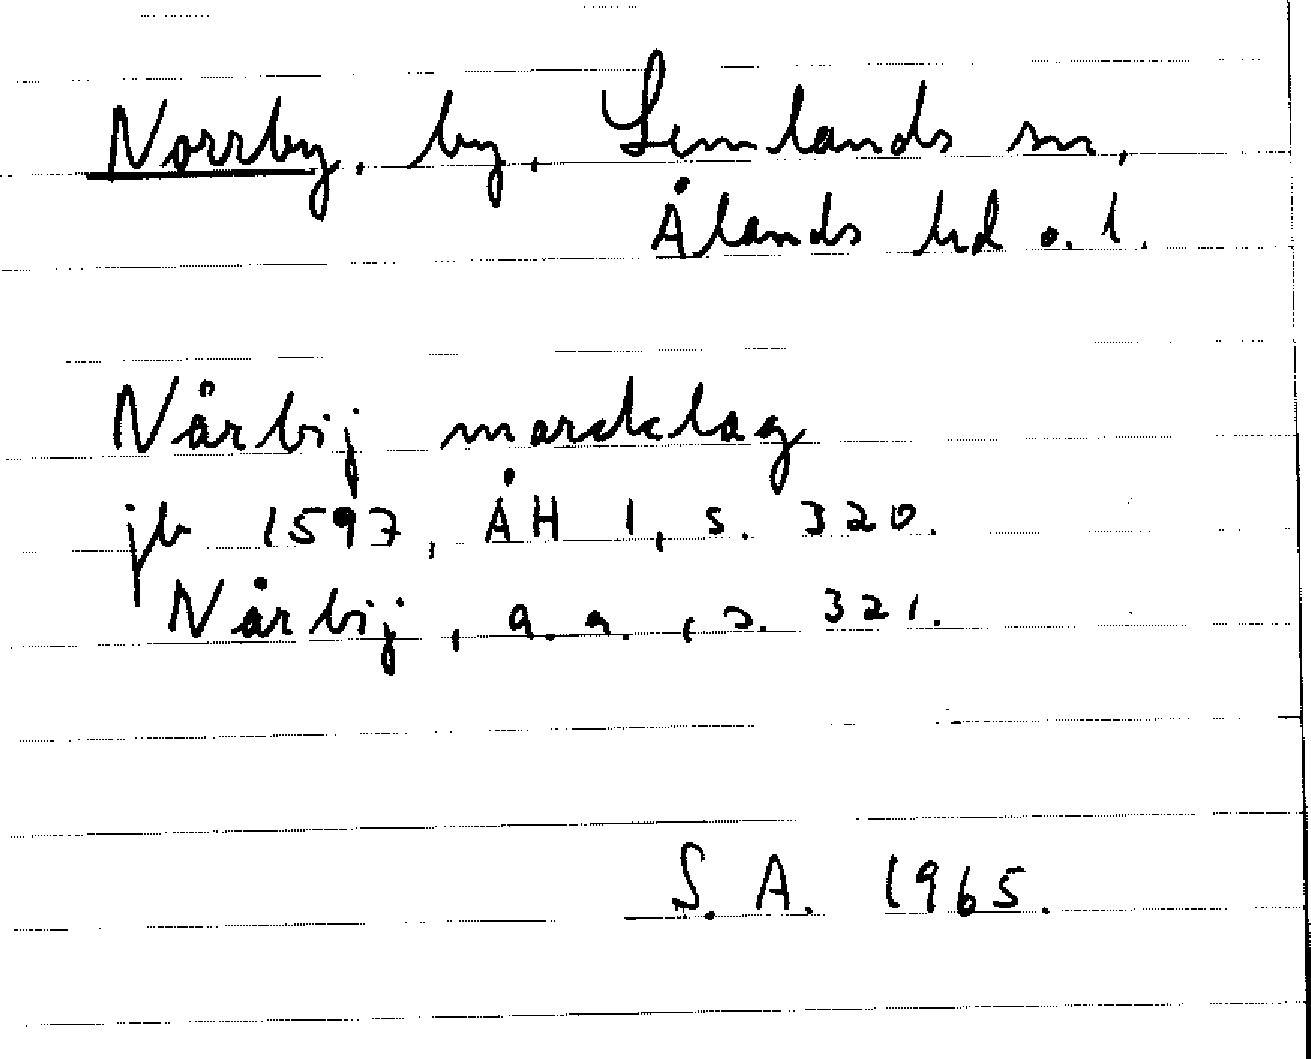 Norrby, by, Lemlands sn,
Ålands hd o. l.
Nårbij marcklag
jb 1597, ÅH 1, s. 320.
Nårbij, a.a., s. 321.
S. A. 1965.